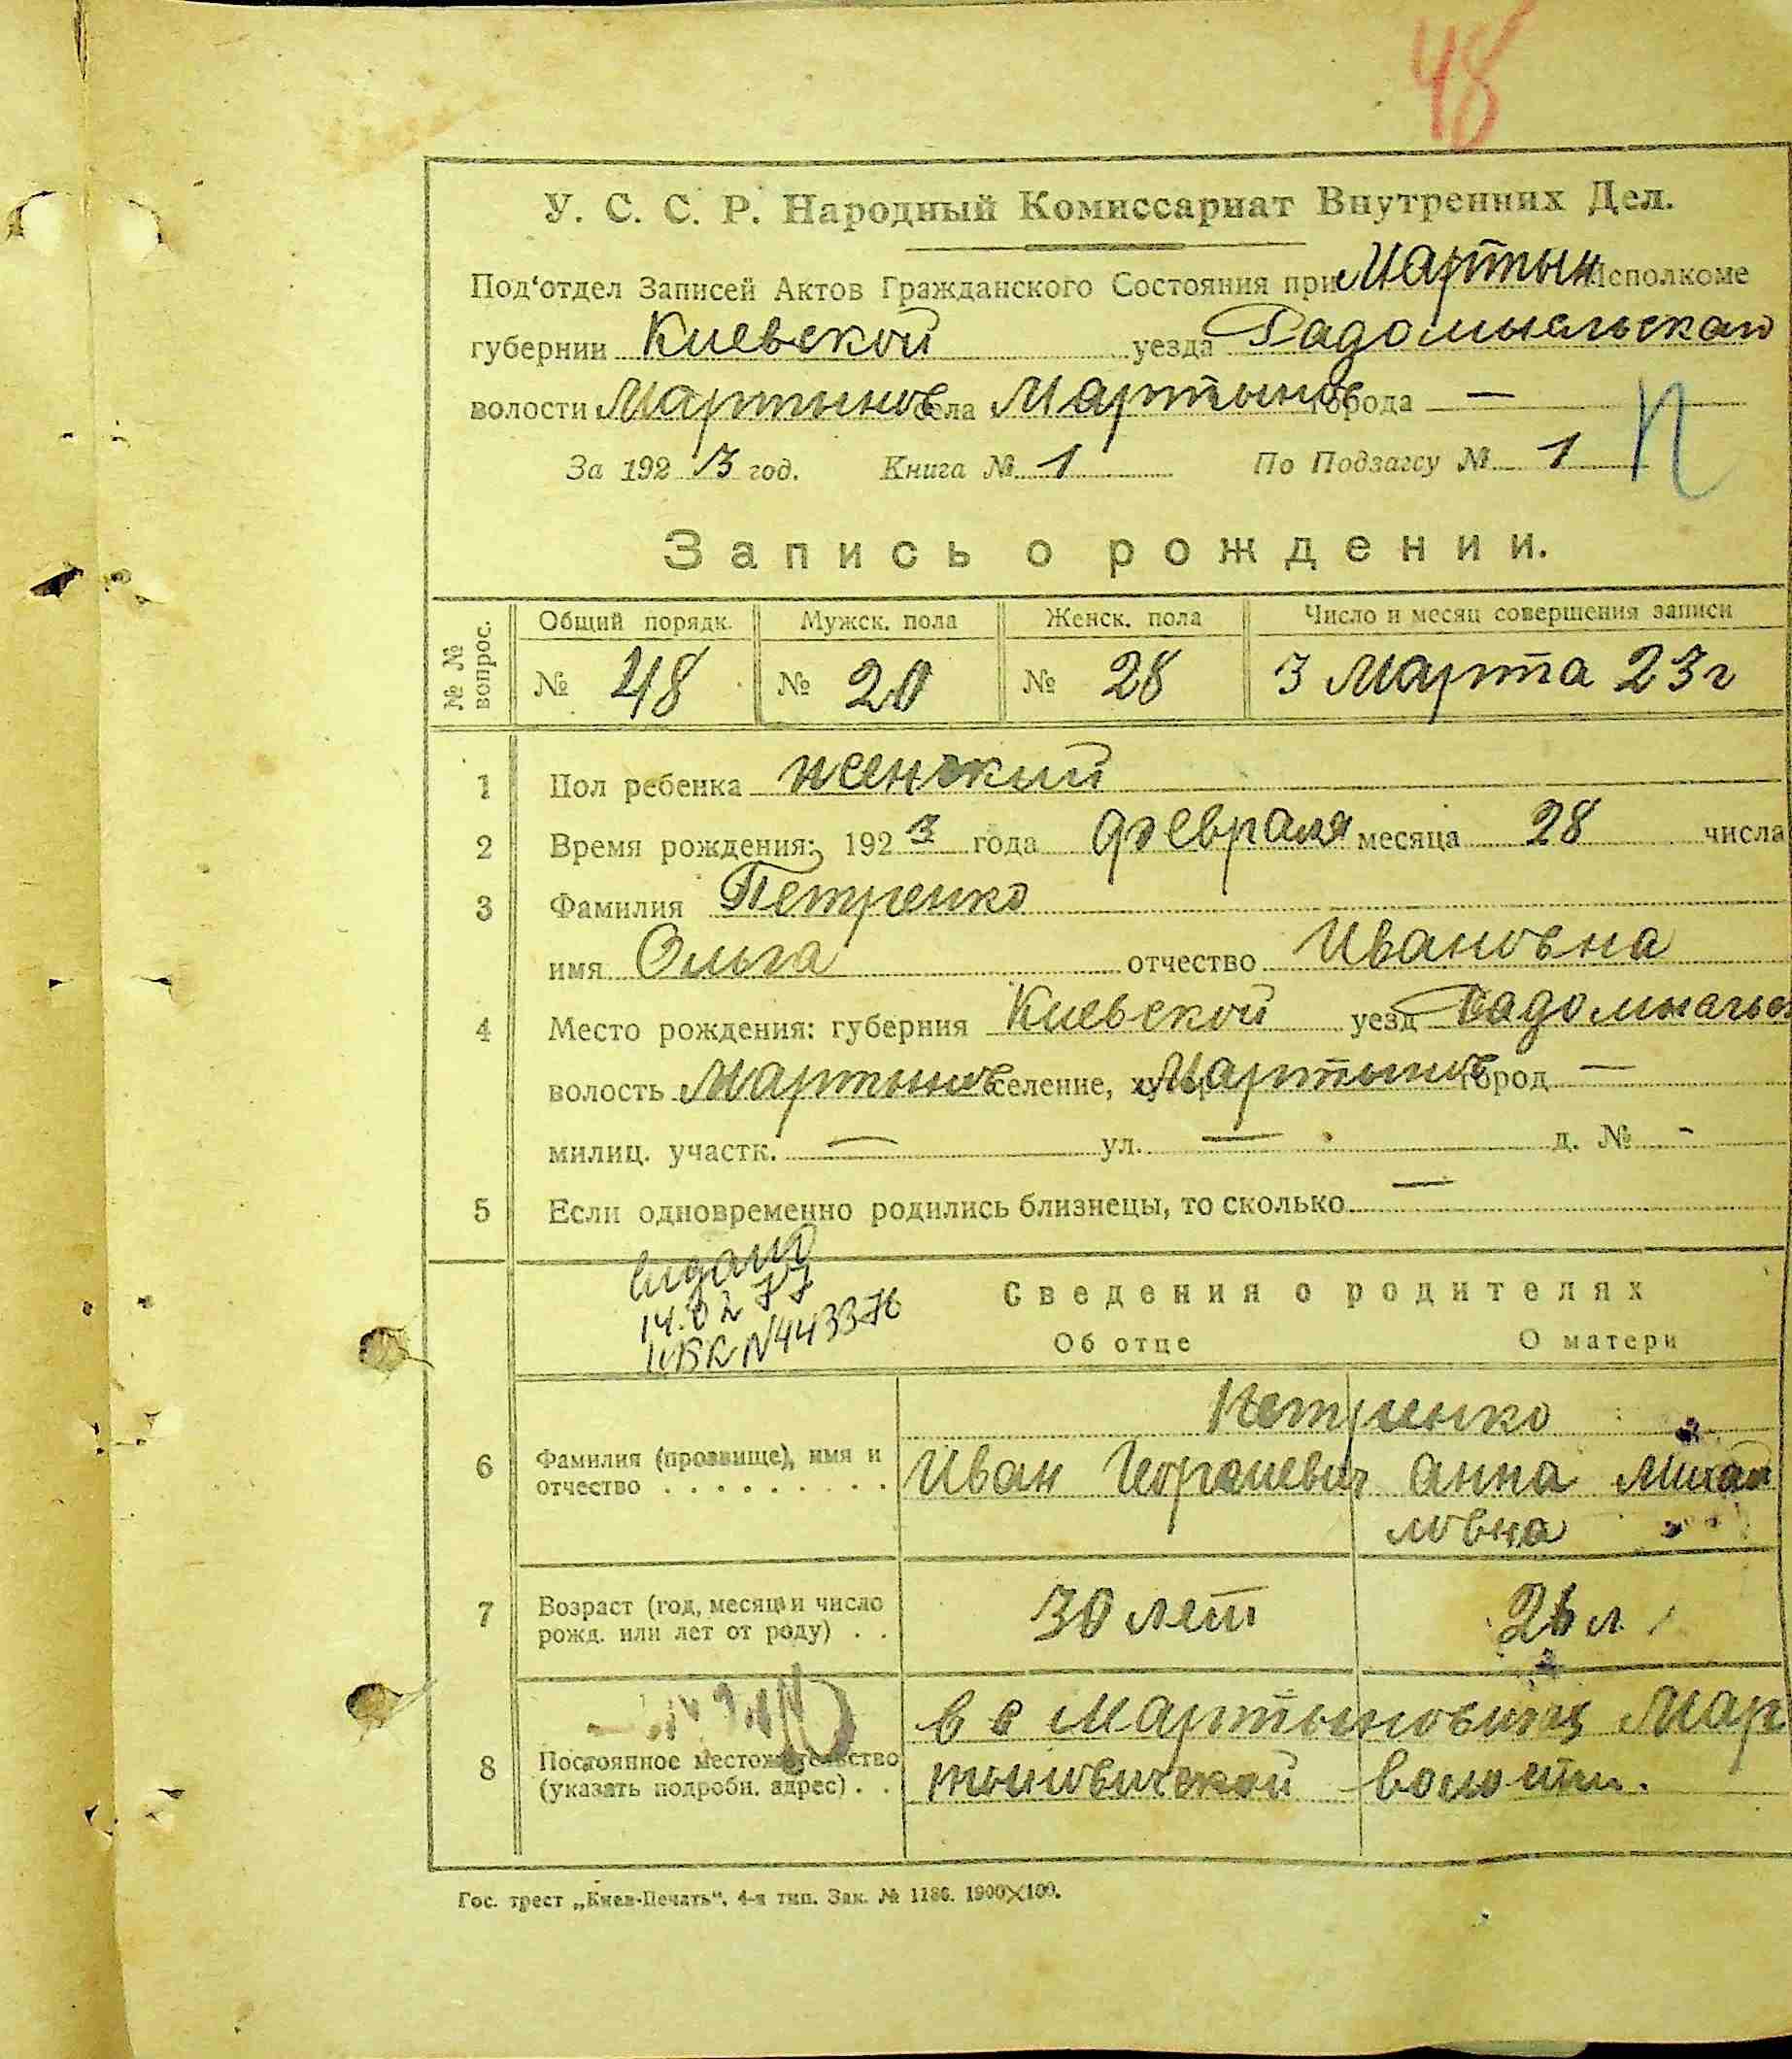 48
У. С. С. Р. Народный Комиссариат Внутренних Дел.
Под'отдел Записей Актов Гражданского Состояния при Мартын Исполкоме
губернии Киевской уезда Радомысльской
волости Мартынов села Мартынов города —
За 1923 год. Книга № 1 По Подзагсу № 1
П
Запись о рождении.
№ № вопрос. Общий порядк. Мужск. пола Женск. пола Число и месяц совершения записи
№ 48 № 20 № 28 3 Марта 23 г
1 Пол ребенка женский
2 Время рождения: 1923 года февраля месяца 28 числа
3 Фамилия Петренко
имя Ольга отчество Ивановна
4 Место рождения: губерния Киевской уезд Радомысльс
волость Мартынов селение, Мартынов город —
милиц. участк. — ул. — д. № -
5 Если одновременно родились близнецы, то сколько —
видано
14.02 77
N443376
Сведения о родителях
Об отце О матери
Петренко
6 Фамилия (прозвище), имя и отчество Иван Георгиевич Анна Михай
ловна
7 Возраст (год, месяц и число рожд. или лет от роду) 30 лет 26 л
в с Мартыновичах Мар
8 Постоянное местожительство (указать подробн. адрес) тыновичской волости.
Гос. трест „Киев-Печать". 4-я тип. Зак. № 1186. 1900×100.